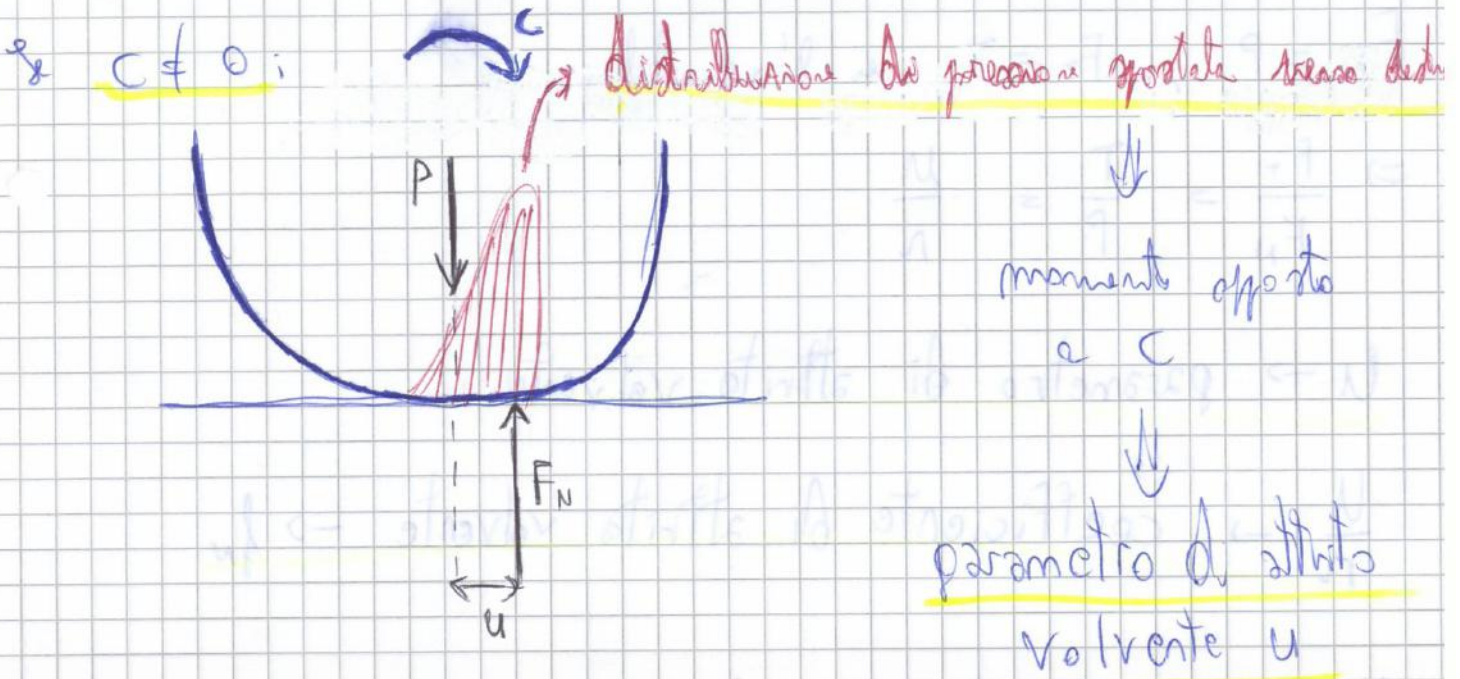 Se C ≠ 0:
C
distribuzione di pressione spostata verso
P
momento opposto
a C
F_N
parametro di attrito
volvente u
u